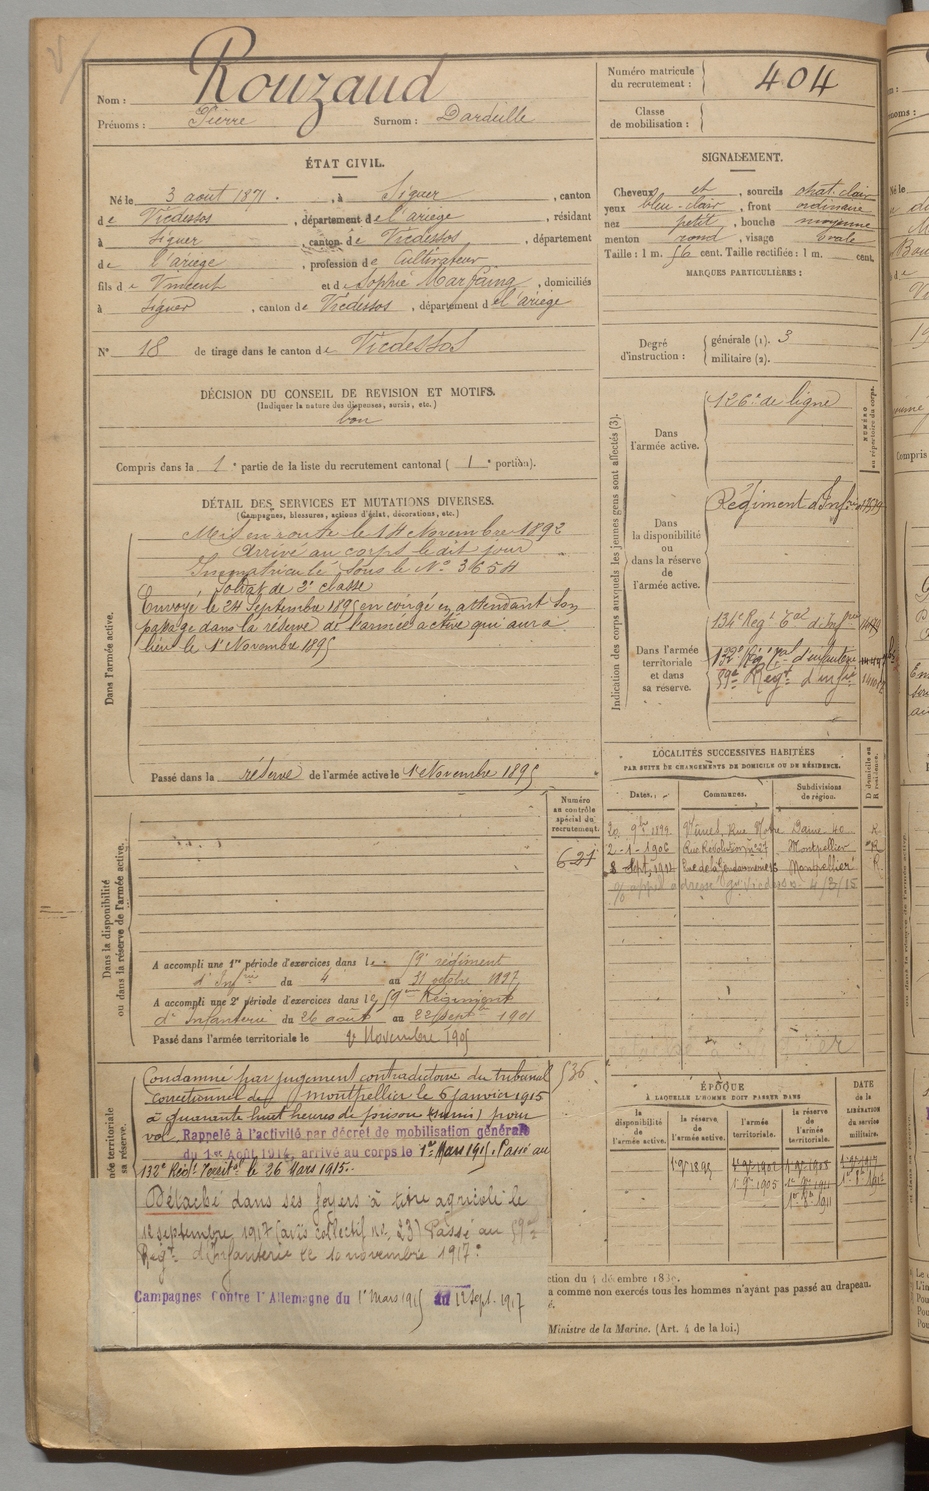 Nom : Rouzaud
Prénoms : Pierre Surnom : Dardeille
ÉTAT CIVIL.
Né le 3 août 1871. , à Siguer , canton
de Vicdessos , département de l'ariège , résidant
à Siguer , canton de Vicdessos , département
de l'ariège , profession de Cultivateur
fils de Vincent et de Sophie Marfaing , domiciliés
à Siguer , canton de Vicdessos , département de l'ariège
N° 18 de tirage dans le canton de Vicdessos
DÉCISION DU CONSEIL DE REVISION ET MOTIFS.
(Indiquer la nature des dispenses, sursis, etc.)
bon
Compris dans la 1e partie de la liste du recrutement cantonal ( 1e portion).
DÉTAIL DES SERVICES ET MUTATIONS DIVERSES.
(Campagnes, blessures, actions d'éclat, décorations, etc.)
Dans l'armée active.
Mis en route le 14 Novembre 1892
Arrivé au corps le dit jour
Immatriculé sous le N° 3654
Soldat de 2e classe
Envoyé le 24 Septembre 1895 en congé en attendant son
passage dans la réserve de l'armée active qui aura
lieu le 1er Novembre 1895
Passé dans la réserve de l'armée active le 1er Novembre 1895
Numéro
au contrôle
spécial du
recrutement.
621
Dans la disponibilité
ou dans la réserve de l'armée active.
A accompli une 1re période d'exercices dans le 59e régiment
d'Infrie du 4 au 31 octobre 1897
A accompli une 2e période d'exercices dans le 59me Régiment
d'Infanterie du 26 août au 22 septbre 1901
Passé dans l'armée territoriale le 1er Novembre 1905
536
née territoriale
sa réserve.
Condamné par jugement contradictoire du tribunal
correctionnel de Montpellier le 6 janvier 1915
à quarante huit heures de prison (sursis) pour
vol. Rappelé à l'activité par décret de mobilisation générale
du 1er Août 1914, arrivé au corps le 1er Mars 1915. Passé au
132e Régt Territal le 26 Mars 1915.
Détaché dans ses foyers à titre agricole le
12 septembre 1917 (avis collectif no 23) Passé au 59me
Régt d'Infanterie le 10 novembre 1917.
Campagnes Contre l'Allemagne du 1er mars 1915 au 12 Sept. 1917
Numéro matricule
du recrutement : 404
Classe
de mobilisation :
SIGNALEMENT.
Cheveux et , sourcils chat. clair
yeux bleu-clair , front ordinaire
nez petit , bouche moyenne
menton rond , visage ovale
Taille : 1 m. 56 cent. Taille rectifiée : 1 m. cent.
MARQUES PARTICULIÈRES :
Degré
d'instruction :
générale (1). 3
militaire (2).
Indication des corps auxquels les jeunes gens sont affectés (3).
NUMÉRO
au répertoire du corps.
Dans
l'armée active.
126e de ligne
Dans
la disponibilité
ou
dans la réserve
de
l'armée active.
Régiment d'Infrie
Dans l'armée
territoriale
et dans
sa réserve.
134e Régt Tal d'Infrie
132e Régt tal d'infanterie
59e Régt d'infie
LOCALITÉS SUCCESSIVES HABITÉES
PAR SUITE DE CHANGEMENTS DE DOMICILE OU DE RÉSIDENCE.
Dates. Communes. Subdivisions
de région.
D domicile ou
R résidence.
20 9bre 1899 Nîmes, Rue Notre Dame 40 R
2-1-1906 Rue Révolution n° 27 Montpellier R
8 Sept. 1911 Rue de la Gendarmerie 16 Montpellier R
ÉPOQUE
À LAQUELLE L'HOMME DOIT PASSER DANS
DATE
de la
LIBÉRATION
du service
militaire.
la
disponibilité
de
l'armée active.
la réserve
de
l'armée active.
l'armée
territoriale.
la réserve
de
l'armée
territoriale.
1er 9bre 1895 1er 9bre 1902 1er 9bre 1908 1er 9bre 1917
1er 9bre 1905 1er 9bre 1911
1er 8bre 1911
ction du 4 décembre 18
a comme non exercés tous les hommes n'ayant pas passé au drapeau.
Ministre de la Marine. (Art. 4 de la loi.)